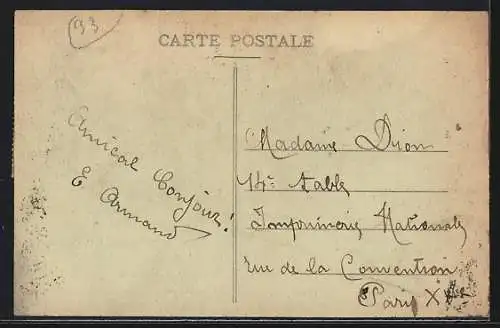 93
CARTE POSTALE
Amical bonjour!
E Armand
Madame Dion
14e table
Imprimerie Nationale
rue de la Convention
Paris XV